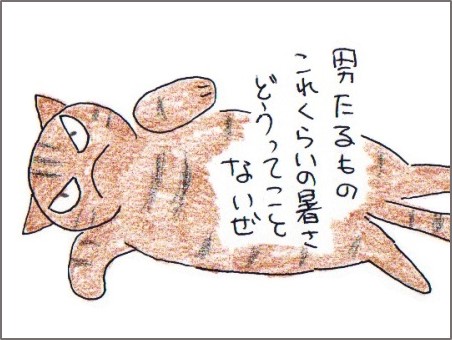 男たるもの
これくらいの暑さ
どうってこと
ないぜ